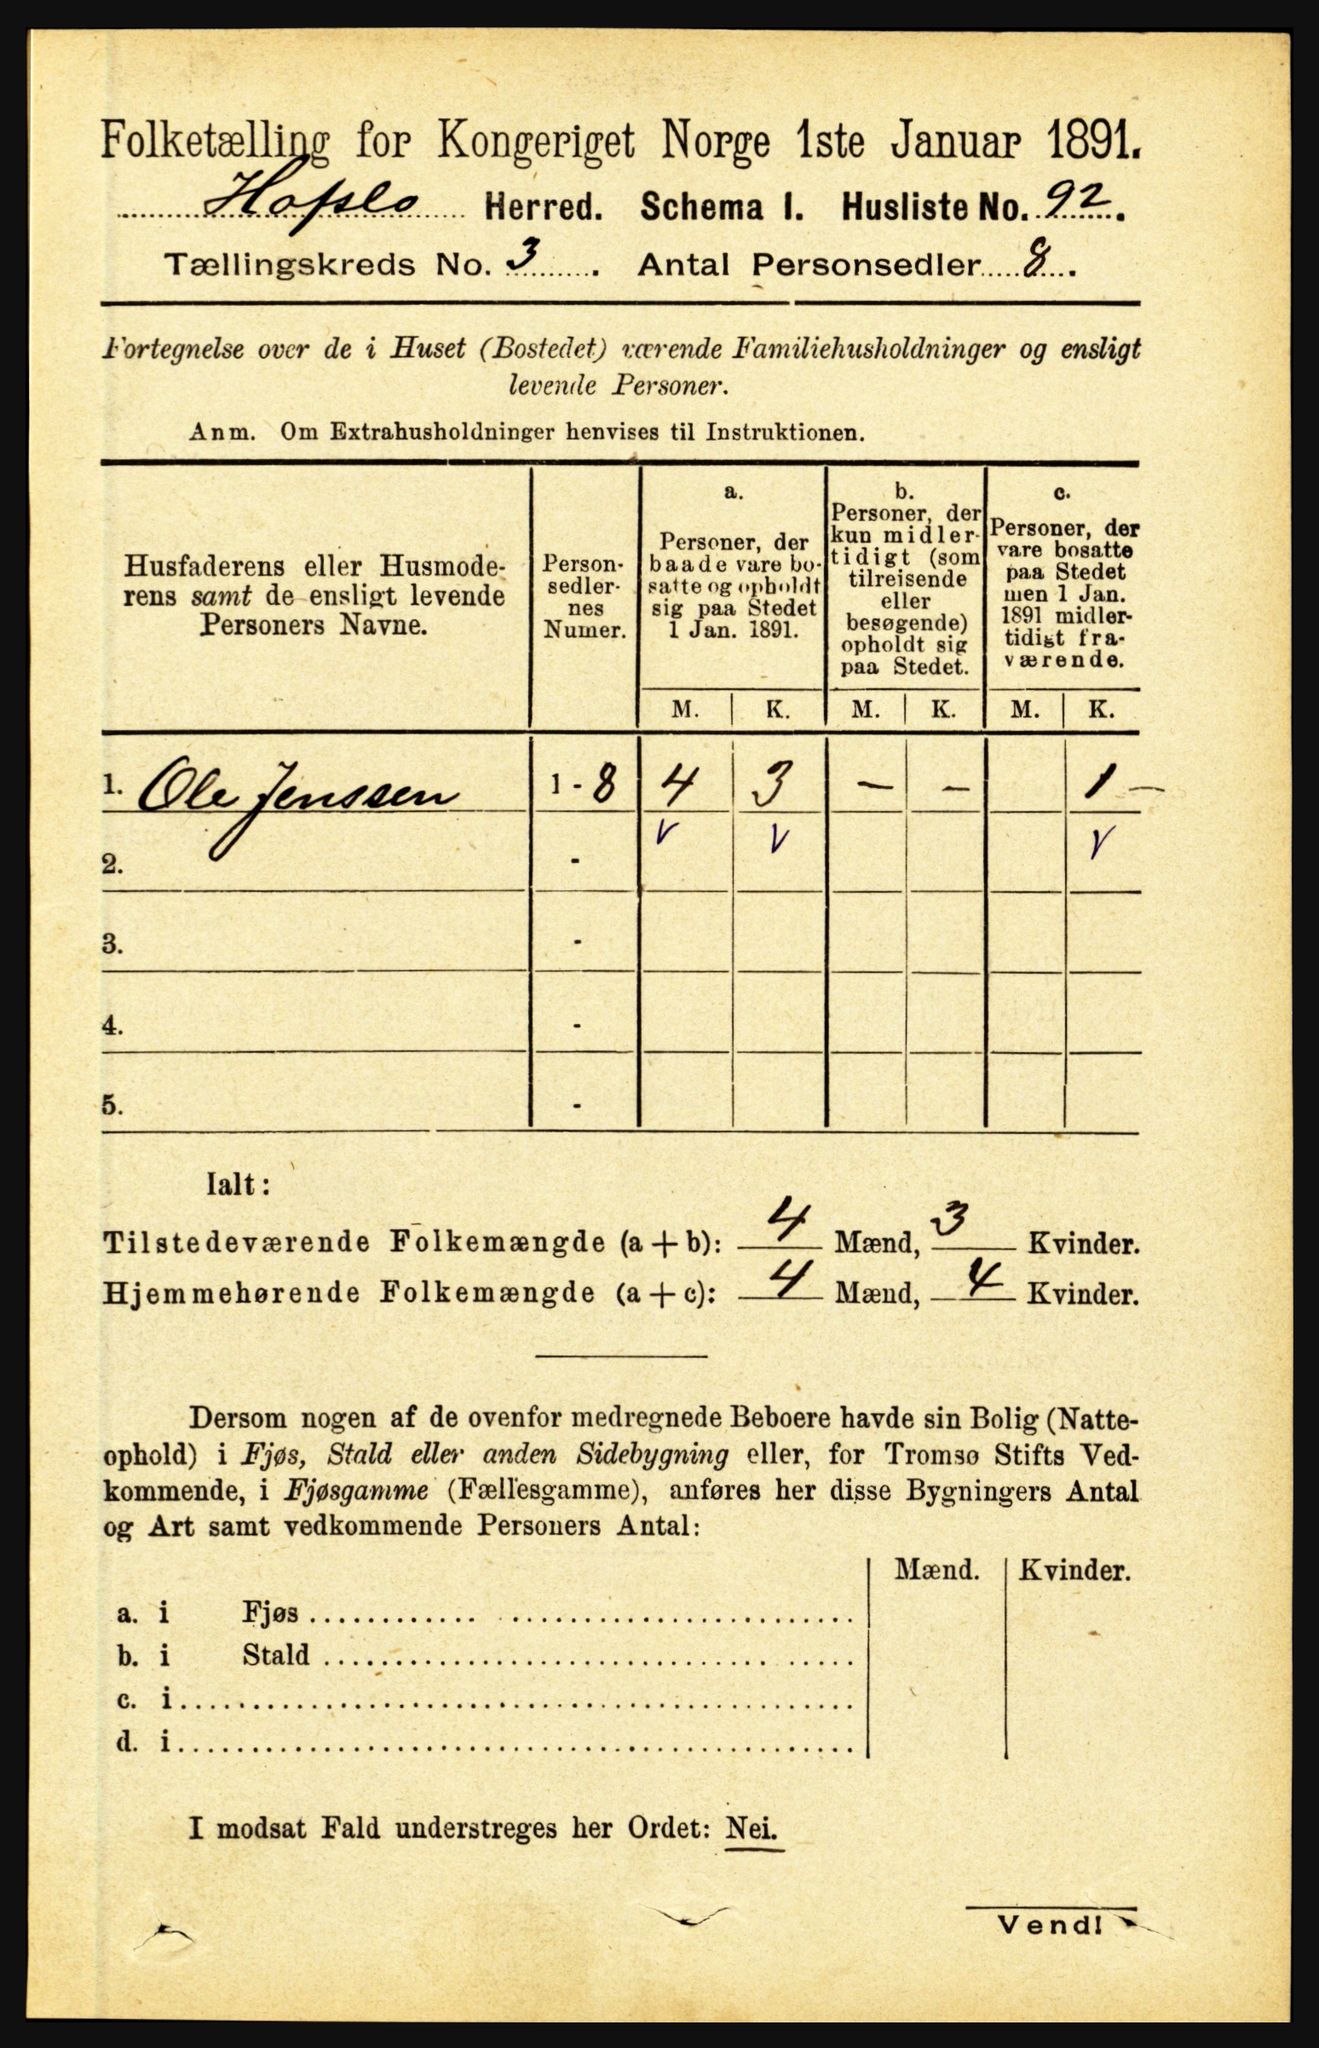 Folketælling for Kongeriget Norge 1ste Januar 1891.
Hafslo Herred. Schema I. Husliste No. 92.
Tællingskreds No. 3. Antal Personsedler 8.
Fortegnelse over de i Huset (Bostedet) værende Familiehusholdninger og ensligt
levende Personer.
Anm. Om Extrahusholdninger henvises til Instruktionen.
Husfaderens eller Husmode-
rens samt de ensligt levende
Personers Navne.
Person-
sedler-
nes
Numer.
a.
Personer, der
baade vare bo-
satte og opholdt
sig paa Stedet
1 Jan. 1891.
b.
Personer, der
kun midler-
tidigt (som
tilreisende
eller
besøgende)
opholdt sig
paa Stedet.
c.
Personer, der
vare bosatte
paa Stedet
men 1 Jan.
1891 midler-
tidigt fra-
værende.
M. K. M. K. M. K.
1. Ole Jenssen 1 - 8 4 3 — — 1 —
2. - v v v
3. -
4. -
5. -
Ialt:
Tilstedeværende Folkemængde (a + b): 4 Mænd, 3 Kvinder.
Hjemmehørende Folkemængde (a + c): 4 Mænd, 4 Kvinder.
Dersom nogen af de ovenfor medregnede Beboere havde sin Bolig (Natte-
ophold) i Fjøs, Stald eller anden Sidebygning eller, for Tromsø Stifts Ved-
kommende, i Fjøsgamme (Fællesgamme), anføres her disse Bygningers Antal
og Art samt vedkommende Personers Antal:
Mænd. Kvinder.
a. i Fjøs
b. i Stald
c. i
d. i
I modsat Fald understreges her Ordet: Nei.
Vend!